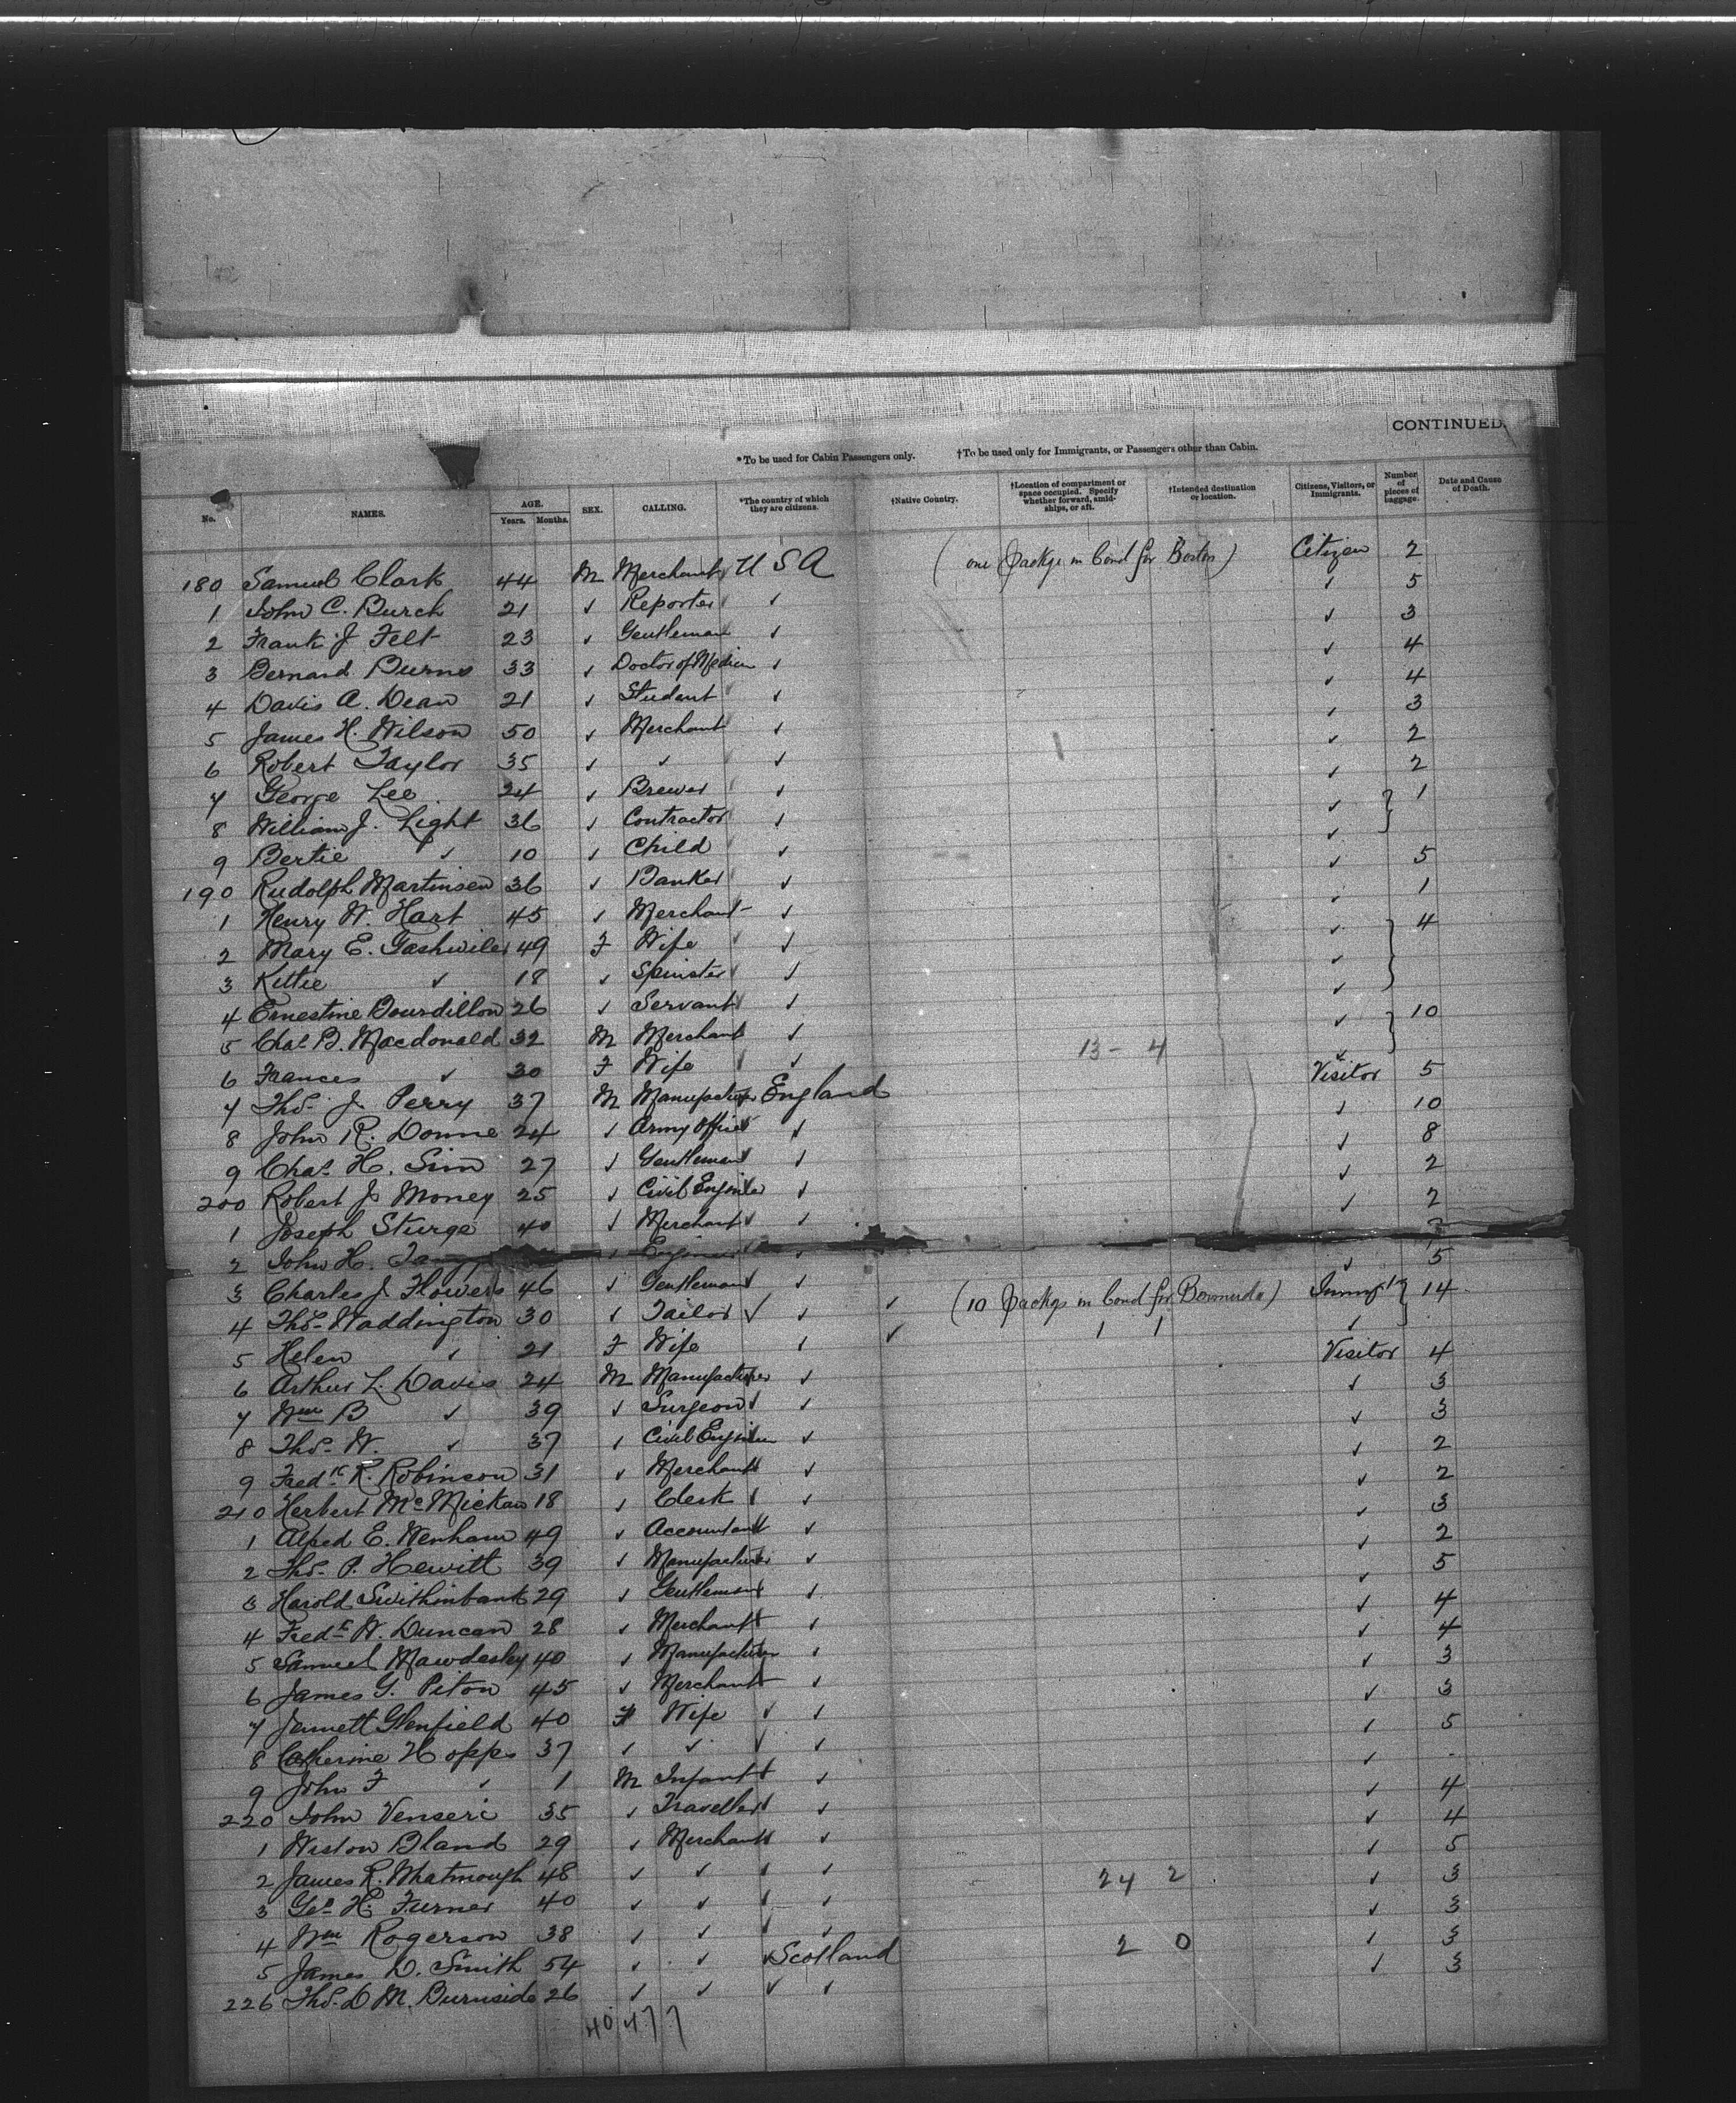 CONTINUED.
*To be used for Cabin Passengers only. †To be used only for Immigrants, or Passengers other than Cabin.
No. NAMES. AGE. Years. Months. SEX. CALLING. *The country of which they are citizens. †Native Country. †Location of compartment or space occupied. Specify whether forward, amidships, or aft. †Intended destination or location. Citizens, Visitors, or Immigrants. Number of pieces of baggage. Date and Cause of Death.
180 Samuel Clark 44 M Merchant U S A (one Packge in bond for Boston) Citizen 2
1 John C. Burch 21 ✓ Reporter ✓ ✓ 5
2 Frank J Felt 23 ✓ Gentleman ✓ ✓ 3
3 Bernard Burns 33 ✓ Doctor of Medicin ✓ ✓ 4
4 Davis A. Dean 21 ✓ Student ✓ ✓ 4
5 James H. Wilson 50 ✓ Merchant ✓ ✓ 3
6 Robert Taylor 35 ✓ ✓ ✓ ✓ 2
7 George Lee 24 ✓ Brewer ✓ ✓ 2
8 William J. Light 36 ✓ Contractor ✓ ✓ } 1
9 Bertie ✓ 10 ✓ Child ✓ ✓
190 Rudolph Martinsen 36 ✓ Banker ✓ ✓ 5
1 Henry W. Hart 45 ✓ Merchant ✓ ✓ 1
2 Mary E. Gashwiler 49 F Wife ✓ ✓ } 4
3 Kittie ✓ 18 ✓ Spinster ✓ ✓
4 Ernestine Bourdillon 26 ✓ Servant ✓ ✓
5 Chas B. Macdonald 32 M Merchant ✓ ✓ } 10
6 Frances ✓ 30 F Wife ✓ 13 - 4 ✓
7 Thos J Perry 37 M Manufacturer England Visitor 5
8 John R. Donne 24 ✓ Army Officer ✓ ✓ 10
9 Chas H. Sim 27 ✓ Gentleman ✓ ✓ 8
200 Robert J Money 25 ✓ Civil Engineer ✓ ✓ 2
1 Joseph Sturge 40 ✓ Merchant ✓ ✓ 2
2 John H. ✓ Engineer ✓
3 Charles J Flowers 46 ✓ Gentleman ✓ ✓ 5
4 Thos Waddington 30 ✓ Tailor ✓ ✓ ✓ (10 Packgs in bond for Bermuda) Immigt } 14
5 Helen ✓ 21 F Wife ✓ ✓ 1 1 ✓
6 Arthur L. Davis 24 M Manufacturer ✓ Visitor 4
7 Wm B ✓ 39 ✓ Surgeon ✓ ✓ 3
8 Thos W. ✓ 37 ✓ Civil Engineer ✓ ✓ 3
9 Fredk R. Robinson 31 ✓ Merchant ✓ ✓ 2
210 Herbert McMickan 18 ✓ Clerk ✓ ✓ 2
1 Alfred E. Wenham 49 ✓ Accountant ✓ ✓ 3
2 Thos P. Hewitt 39 ✓ Manufacturer ✓ ✓ 2
3 Harold Swithinbank 29 ✓ Gentleman ✓ ✓ 5
4 Fredk W. Duncan 28 ✓ Merchant ✓ ✓ 4
5 Samuel Mawdesley 40 ✓ Manufacturer ✓ ✓ 4
6 James G. Piton 45 ✓ Merchant ✓ ✓ 3
7 Jennett Glenfield 40 F Wife ✓ ✓ ✓ 3
8 Catherine Hopps 37 ✓ ✓ ✓ ✓ ✓ 5
9 John F ✓ 1 M Infant ✓ ✓ -
220 John Venseri 35 ✓ Traveller ✓ ✓ 4
1 Weston Bland 29 ✓ Merchant ✓ ✓ 4
2 James R. Whatmough 48 ✓ ✓ ✓ ✓ ✓ 5
3 Geo H. Furner 40 ✓ ✓ ✓ ✓ 24 2 ✓ 3
4 Wm Rogerson 38 ✓ ✓ ✓ ✓ ✓ 3
5 James D. Smith 54 ✓ ✓ ✓ Scotland 2 0 ✓ 3
226 Thos. D M. Burnside 26 ✓ ✓ ✓ ✓ ✓ 3